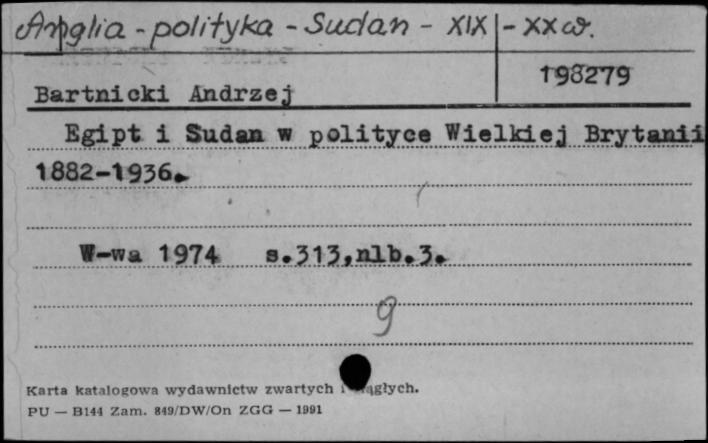 Anglia - polityka - Sudan - XIX - XX w.
198279
Bartnicki Andrzej
Egipt i Sudan w polityce Wielkiej Brytanii
1882-1936.
W-wa 1974 s.313,nlb.3.
9
Karta katalogowa wydawnictw zwartych i
PU — B144 Zam. 849/DW/On ZGG — 1991